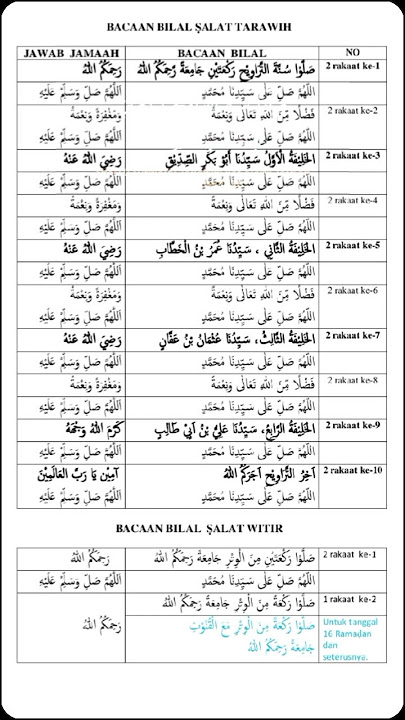 BACAAN BILAL ṢALAT TARAWIH
JAWAB JAMAAH BACAAN BILAL NO
صَلُّوْا سُنَّةَ التَّرَاوِيْحِ رَكْعَتَيْنِ جَامِعَةً رَّحِمَكُمُ اللهُ رَحِمَكُمُ اللهُ 2 rakaat ke-1
اَللّٰهُمَّ صَلِّ عَلَى سَيِّدِنَا مُحَمَّدٍ اَللّٰهُمَّ صَلِّ وَسَلِّمْ عَلَيْهِ
فَضْلًا مِّنَ اللهِ تَعَالَى وَنِعْمَةً وَمَغْفِرَةً وَنِعْمَةً 2 rakaat ke-2
اَللّٰهُمَّ صَلِّ عَلَى سَيِّدِنَا مُحَمَّدٍ اَللّٰهُمَّ صَلِّ وَسَلِّمْ عَلَيْهِ
الْخَلِيْفَةُ الْأَوَّلُ سَيِّدُنَا أَبُوْ بَكَرٍ الصِّدِّيْقِ رَضِيَ اللهُ عَنْهُ 2 rakaat ke-3
اَللّٰهُمَّ صَلِّ عَلَى سَيِّدِنَا مُحَمَّدٍ اَللّٰهُمَّ صَلِّ وَسَلِّمْ عَلَيْهِ
فَضْلًا مِّنَ اللهِ تَعَالَى وَنِعْمَةً وَمَغْفِرَةً وَنِعْمَةً 2 rakaat ke-4
اَللّٰهُمَّ صَلِّ عَلَى سَيِّدِنَا مُحَمَّدٍ اَللّٰهُمَّ صَلِّ وَسَلِّمْ عَلَيْهِ
الْخَلِيْفَةُ الثَّانِي ، سَيِّدُنَا عُمَرُ بْنُ الْخَطَّابِ رَضِيَ اللهُ عَنْهُ 2 rakaat ke-5
اَللّٰهُمَّ صَلِّ عَلَى سَيِّدِنَا مُحَمَّدٍ اَللّٰهُمَّ صَلِّ وَسَلِّمْ عَلَيْهِ
فَضْلًا مِّنَ اللهِ تَعَالَى وَنِعْمَةً وَمَغْفِرَةً وَنِعْمَةً 2 rakaat ke-6
اَللّٰهُمَّ صَلِّ عَلَى سَيِّدِنَا مُحَمَّدٍ اَللّٰهُمَّ صَلِّ وَسَلِّمْ عَلَيْهِ
الْخَلِيْفَةُ الثَّالِثُ، سَيِّدُنَا عُثْمَانُ بْنُ عَفَّانٍ رَضِيَ اللهُ عَنْهُ 2 rakaat ke-7
اَللّٰهُمَّ صَلِّ عَلَى سَيِّدِنَا مُحَمَّدٍ اَللّٰهُمَّ صَلِّ وَسَلِّمْ عَلَيْهِ
فَضْلًا مِّنَ اللهِ تَعَالَى وَنِعْمَةً وَمَغْفِرَةً وَنِعْمَةً 2 rakaat ke-8
اَللّٰهُمَّ صَلِّ عَلَى سَيِّدِنَا مُحَمَّدٍ اَللّٰهُمَّ صَلِّ وَسَلِّمْ عَلَيْهِ
الْخَلِيْفَةُ الرَّابِعُ، سَيِّدُنَا عَلِيُّ بْنُ أَبِيْ طَالِبٍ كَرَّمَ اللهُ وَجْهَهُ 2 rakaat ke-9
اَللّٰهُمَّ صَلِّ عَلَى سَيِّدِنَا مُحَمَّدٍ اَللّٰهُمَّ صَلِّ وَسَلِّمْ عَلَيْهِ
آخِرُ التَّرَاوِيْحِ آجَرَكُمُ اللهُ آمِيْن يَا رَبَّ الْعَالَمِيْنَ 2 rakaat ke-10
اَللّٰهُمَّ صَلِّ عَلَى سَيِّدِنَا مُحَمَّدٍ اَللّٰهُمَّ صَلِّ وَسَلِّمْ عَلَيْهِ
BACAAN BILAL ṢALAT WITIR
صَلُّوْا رَكْعَتَيْنِ مِنَ الْوِتْرِ جَامِعَةً رَحِمَكُمُ اللهُ رَحِمَكُمُ اللهُ 2 rakaat ke-1
اَللّٰهُمَّ صَلِّ عَلَى سَيِّدِنَا مُحَمَّدٍ اَللّٰهُمَّ صَلِّ وَسَلِّمْ عَلَيْهِ
صَلُّوْا رَكْعَةً مِنَ الْوِتْرِ جَامِعَةً رَحِمَكُمُ اللهُ 1 rakaat ke-2
صَلُّوْا رَكْعَةً مِنَ الْوِتْرِ مَعَ الْقُنُوْتِ رَحِمَكُمُ اللهُ Untuk tanggal
جَامِعَةً رَحِمَكُمُ اللهُ 16 Ramadan
dan
seterusnya.